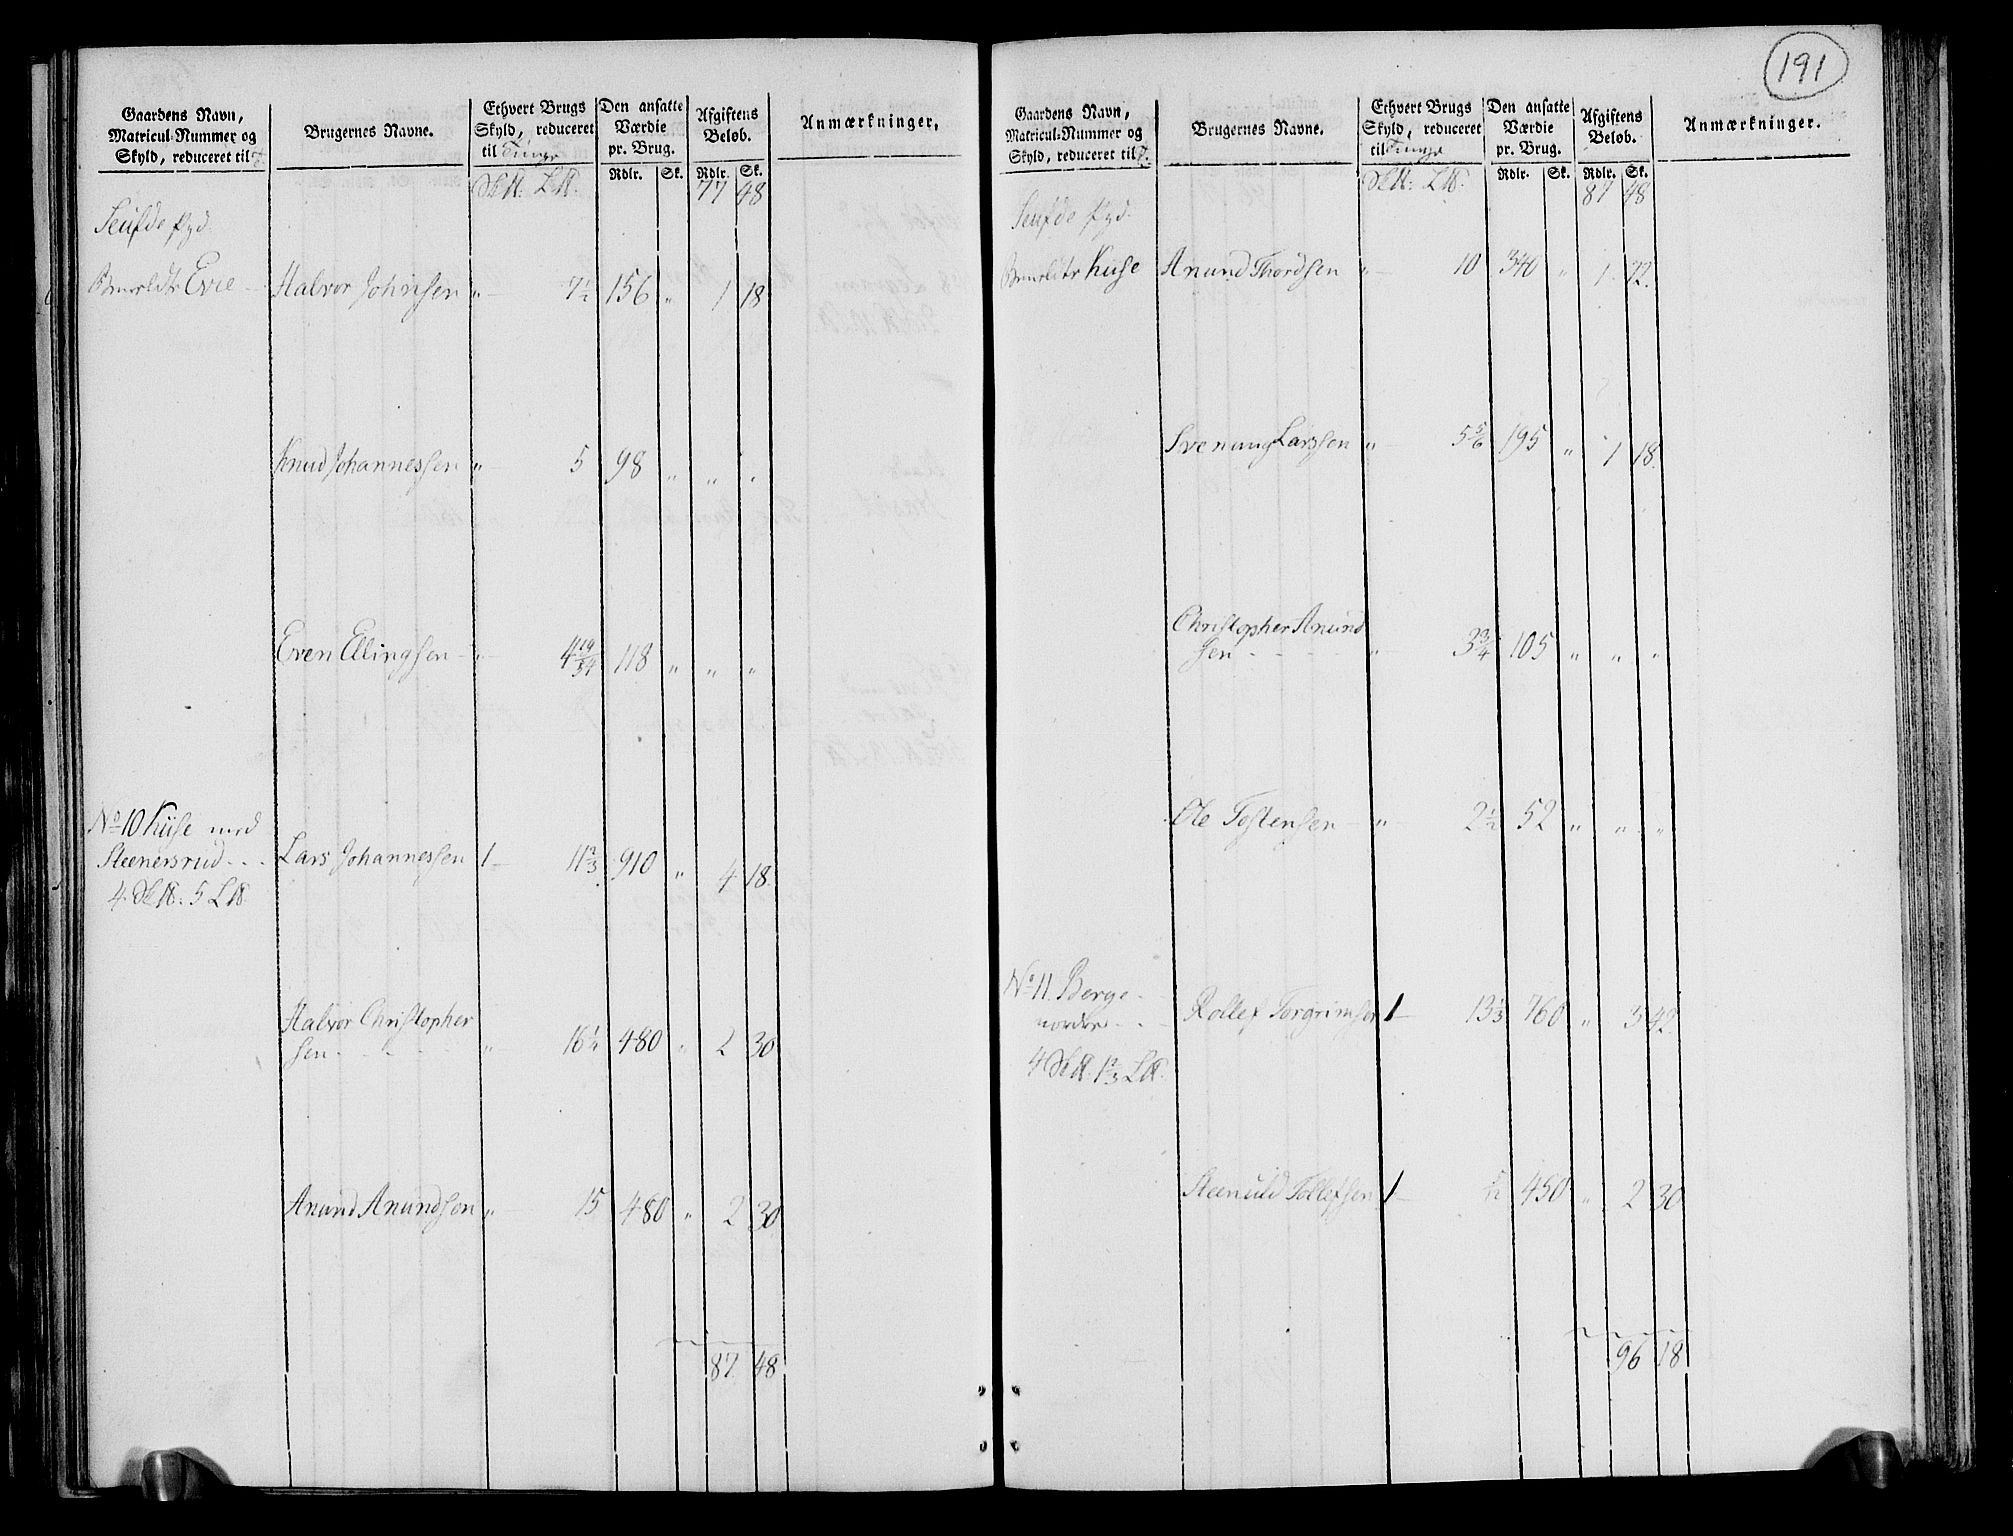 191
Gaardens Navn,
Matricul-Nummer og
Skyld, reduceret til T.
Brugernes Navne.
Ethvert Brugs
Skyld, reduceret
til Tunge
Den ansatte
Værdie
pr. Brug.
Afgiftens
Beløb.
Anmærkninger.
Rdlr. Sk. Rdlr. Sk.
77 48
Halvor Johnsen " 7½ 156 " 1 18
Knud Johannessen " 5 98 " " "
Even Ellingsen " 4 118 " " "
No 10 Huse med
Steenersrud
Lars Johannessen 1 11⅔ 910 " 4 18
4 5
Halvor Christopher
sen " 480 " 2 30
Anund Anundsen " 15 480 " 2 30
87 48
Gaardens Navn,
Matricul-Nummer og
Skyld, reduceret til T.
Brugernes Navne.
Ethvert Brugs
Skyld, reduceret
til Tunge
Den ansatte
Værdie
pr. Brug.
Afgiftens
Beløb.
Anmærkninger.
Rdlr. Sk. Rdlr. Sk.
87 48
Huse Anund Thordsen " 10 340 " 1 72
Svenung Larssen " 5⅚ 195 " 1 18
Christopher Anund
sen " 3¾ 105 " " "
Ole Tostensen " 2½ 52 " " "
No 11 Berge
nordre
Rollef Torgrimsen 1 13⅓ 760 " 3 42
4 1⅔
Steenuld Tollefsen 1 450 " 2 30
96 18